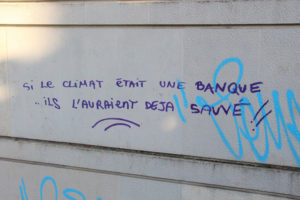 Si LE CLiMAT ÉTAIT UNE BANQUE
..iLS L'AURAiENT DEJA SAUVÉ !!